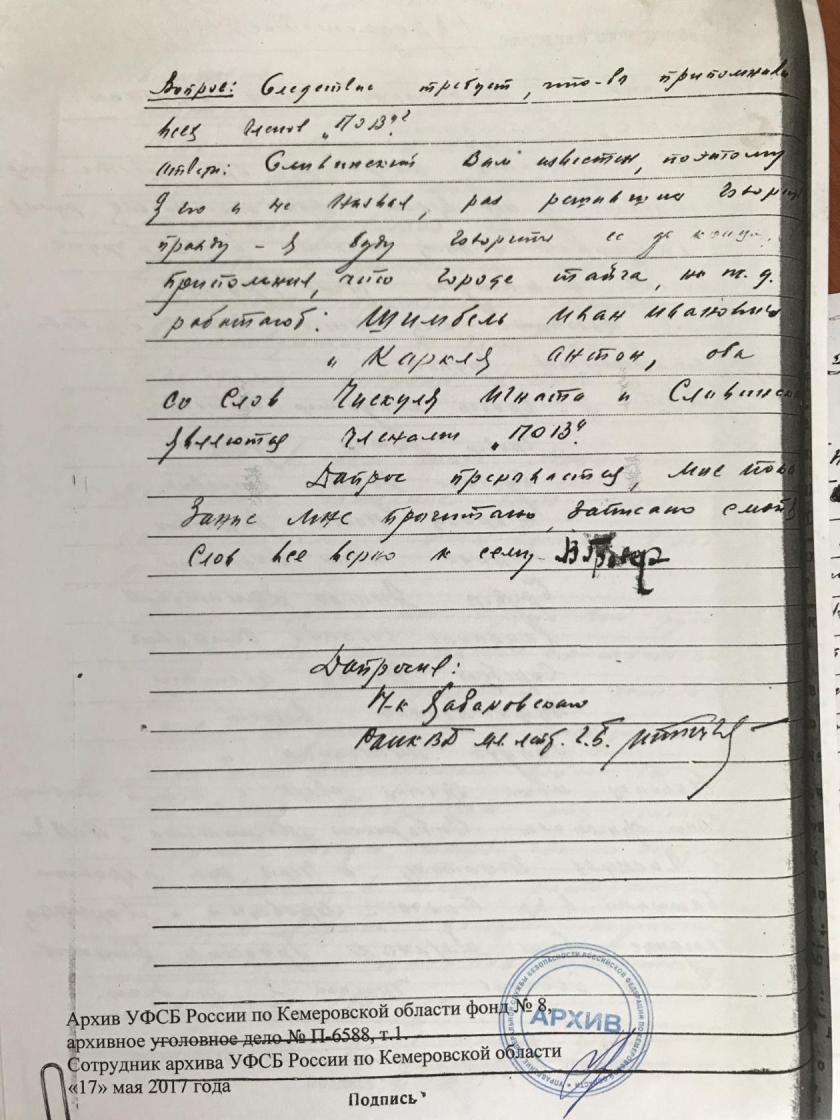 Вопрос: Следствие требует, что-вы припомнили
всех членов „ПОВ“?
Ответ: Сливинский Вам известен, поэтому
я его и не назвал, раз решивши говорить
правду – я буду говорить ее до конца.
Припоминая, что городе тайга, на ж.д.
работают: Шимбель Иван Иванович
" Каркля антон, оба
со слов Чискуля Игната и Сливинско
являются членами „ПОВ“.
Допрос прерывается, мне пока
Запис мне прочитано, записано с моих
слов все верно к сему
Допросил:
Н-к
РОНКВД мл. лейт. Г.Б.
Архив УФСБ России по Кемеровской области фонд № 8,
архивное уголовное дело № П-6588, т.1.
Сотрудник архива УФСБ России по Кемеровской области
«17» мая 2017 года
Подпись
АРХИВ